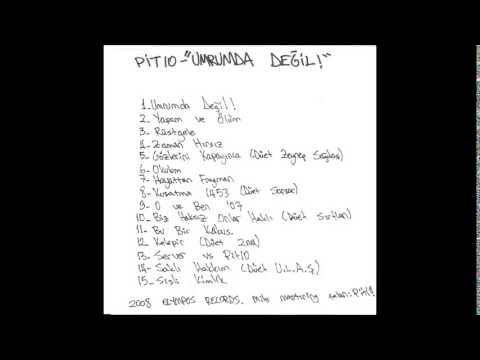 PiT10-"UMRUMDA DEĞİL!"
1-Umrumda Değil!
2- Yaşam ve Ölüm
3- Rastgele
4- Zaman Hırsızı
5- Gözlerini Kapayınca (Düet Zeynep
6-
7- Hayattan Fragman
8- Kuşatma 1453 (Düet Sansar)
9- O ve Ben '07
10- Biz Haksız Onlar Haklı (Düet Sırtlan)
11- Bu Bir Kabus.
12- Kelepir (Düet
13- Server vs Pit10
14- Saklı Hakkım (Düet U.L.A.Ş)
15- Sisli Kimlik
2008 OLYMPOS RECORDS. Mix mastering